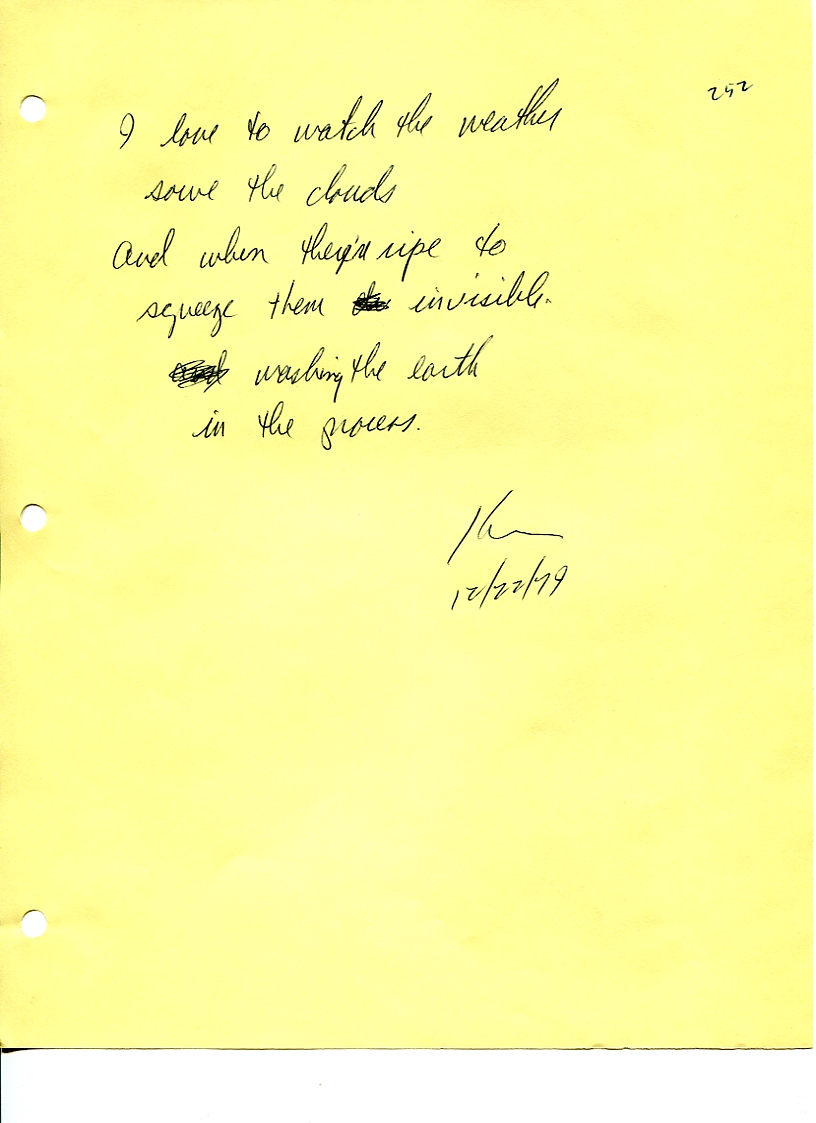 252
I love to watch the weather
sowe the clouds
And when they're ripe to
squeeze them invisible.
washing the earth
in the process.
12/22/79